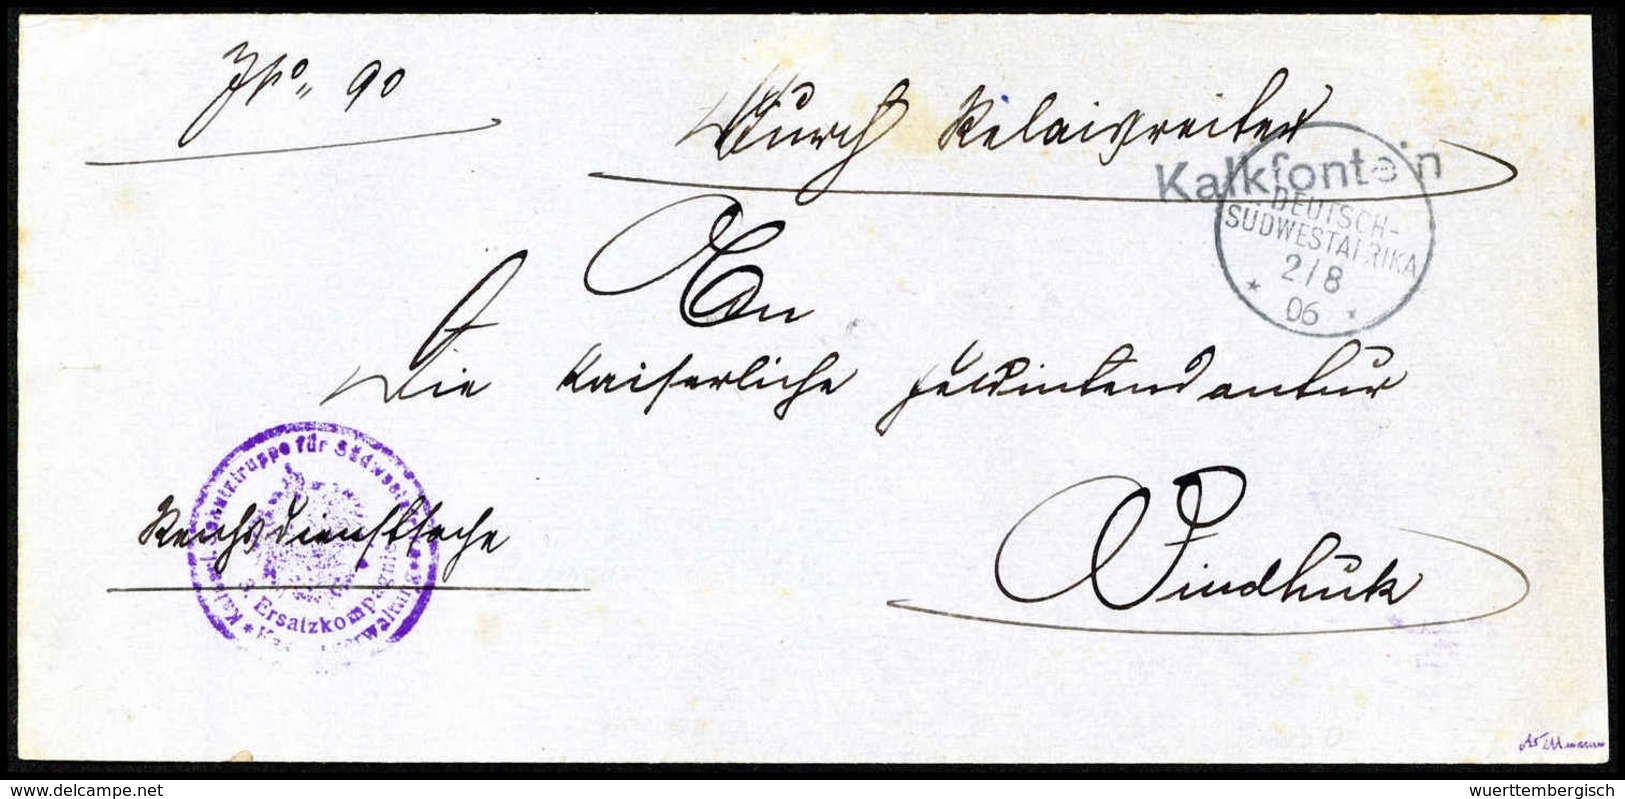 JNo. 90
Durch Relaisreiter
Kalkfontein
DEUTSCH-
SÜDWESTAFRIKA
2/8
06
An
Die Kaiserliche Feldintendantur
Windhuk
Reichsdienstsache
Schutztruppe für Südwestafrika
3. Ersatzkompagnie
delcampe.net
wuerttembergisch